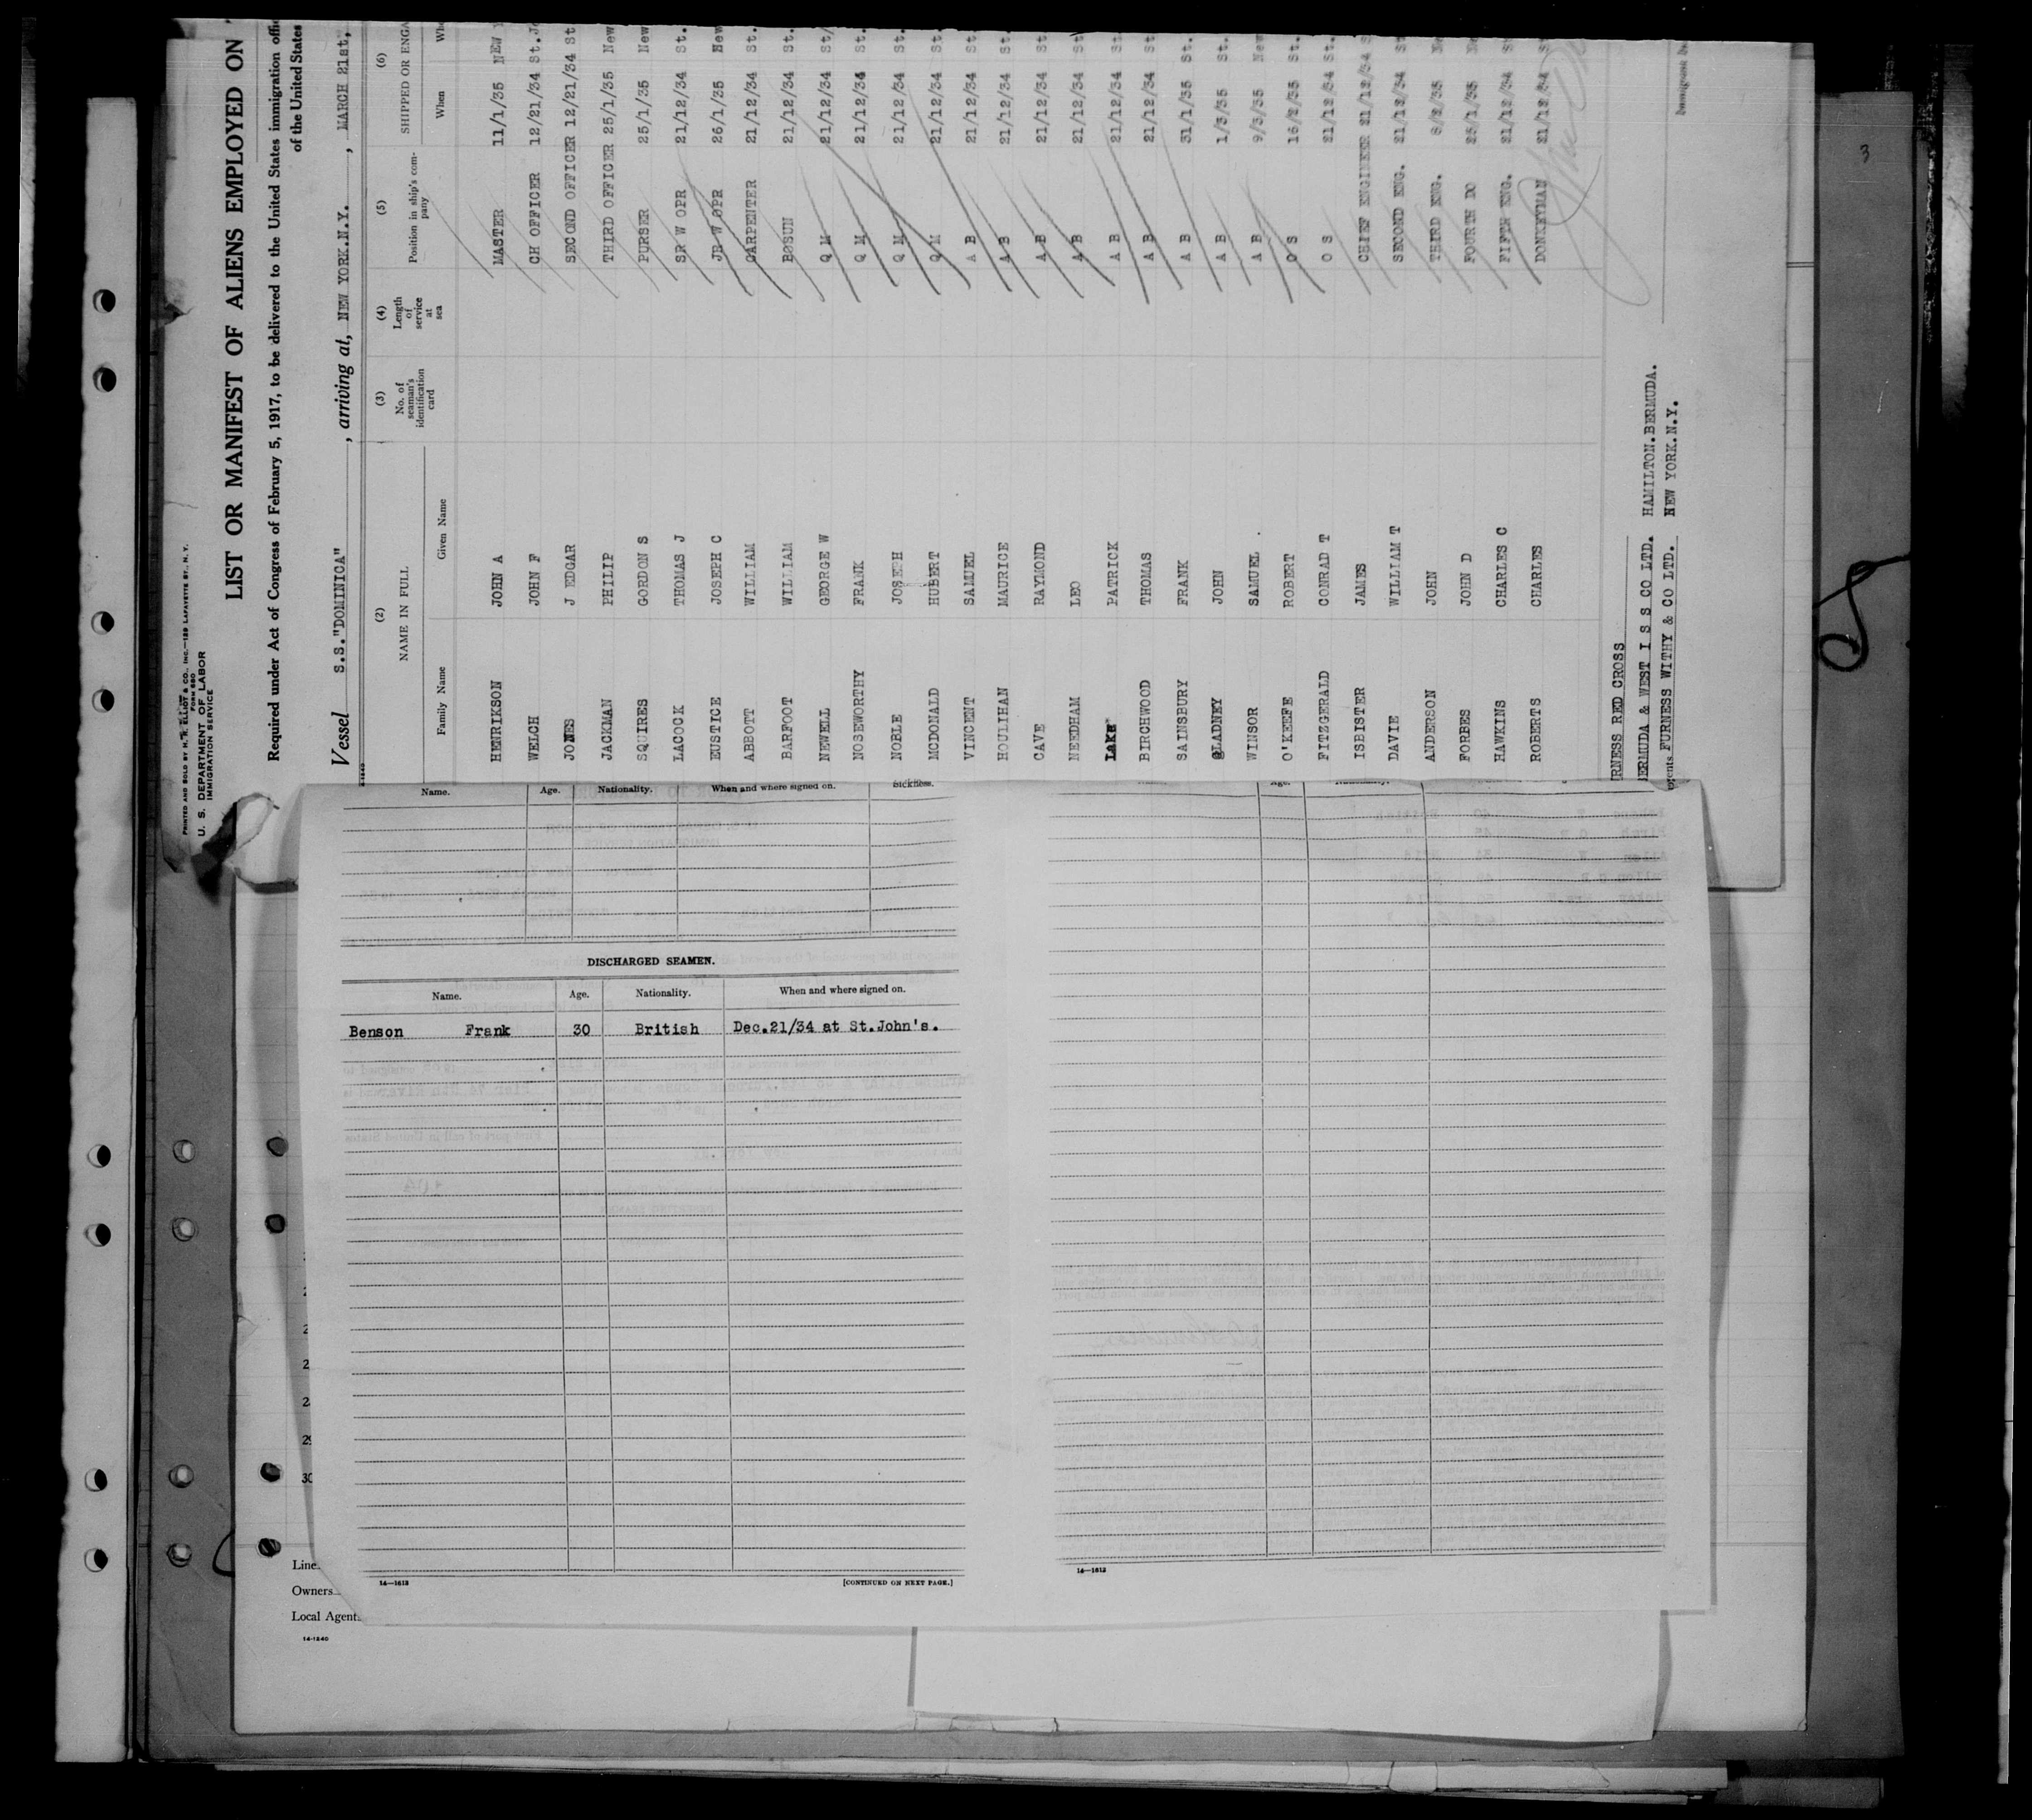 PRINTED AND SOLD BY M. R. ELLIOT & CO., INC.—129 LAFAYETTE ST., N. Y.
FORM 680
U. S. DEPARTMENT OF LABOR
IMMIGRATION SERVICE
LIST OR MANIFEST OF ALIENS EMPLOYED ON
Required under Act of Congress of February 5, 1917, to be delivered to the United States immigration
of the United States
Vessel S.S."DOMINICA", arriving at, NEW YORK.N.Y., MARCH 21st,
(2) (3) (4) (5) (6)
NAME IN FULL No. of seaman's identification card Length of service at sea Position in ship's company SHIPPED OR
Family Name Given Name When
HENRIKSON JOHN A MASTER 11/1/35 NEW
WELCH JOHN F CH OFFICER 12/21/34 St.J
JONES J EDGAR SECOND OFFICER 12/21/34 St
JACKMAN PHILIP THIRD OFFICER 25/1/35 New
SQUIRES GORDON S PURSER 25/1/35 New
LACOCK THOMAS J SR W OPR 21/12/34 St.
EUSTICE JOSEPH C JR W OPR 26/1/35 New
ABBOTT WILLIAM CARPENTER 21/12/34 St.
BARFOOT WILLIAM BOSUN 21/12/34 St.
NEWELL GEORGE W Q M 21/12/34 St/
NOSEWORTHY FRANK Q M 21/12/34 St.
NOBLE JOSEPH Q M 21/12/34 St.
MCDONALD HUBERT Q M 21/12/34 St
VINCENT SAMUEL A B 21/12/34 St
HOULIHAN MAURICE A B 21/12/34 St.
CAVE RAYMOND A B 21/12/34 St
NEEDHAM LEO A B 21/12/34 St
LAKE PATRICK A B 21/12/34 St
BIRCHWOOD THOMAS A B 21/12/34 St.
SAINSBURY FRANK A B 31/1/35 St.
GLADNEY JOHN A B 1/3/35 St.
WINSOR SAMUEL . A B 9/3/35 New
O'KEEFE ROBERT O S 16/2/35 St.
FITZGERALD CONRAD T O S 21/12/34 St.
ISBISTER JAMES CHIEF ENGINEER 21/12/34 S
DAVIE WILLIAM T SECOND ENG. 21/12/34 St
ANDERSON JOHN THIRD ENG. 8/2/35 Ne
FORBES JOHN D FOURTH DO 25/1/35 Ne
HAWKINS CHARLES C FIFTH ENG. 21/12/34 St
ROBERTS CHARLES DONKEYMAN 21/12/34 St
RNESS RED CROSS
ERMUDA & WEST I S S CO LTD. HAMILTON.BERMUDA.
gents FURNESS WITHY & CO LTD. NEW YORK.N.Y.
Immigrant
3
Name. Age. Nationality. When and where signed on. Sickness.
DISCHARGED SEAMEN.
Name. Age. Nationality. When and where signed on.
Benson Frank 30 British Dec.21/34 at St.John's.
29
30
14—1612 [CONTINUED ON NEXT PAGE.]
14—1612
Line
Owners
Local Agents
14-1240